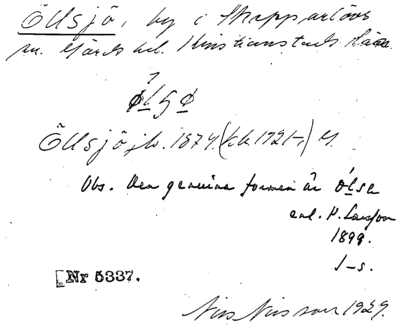 Öllsjö, by i Skepparslövs
sn. Gärds hd. Kristianstads län.
ø̱ḻʂø̱
Öllsjö jb. 1874. (kb. 1721-) M.
Obs. Den genuina formen är ólsa
enl. P. Larsson
1899.
J-s.
[Nr 5337.
Nils Nilsson 1929.